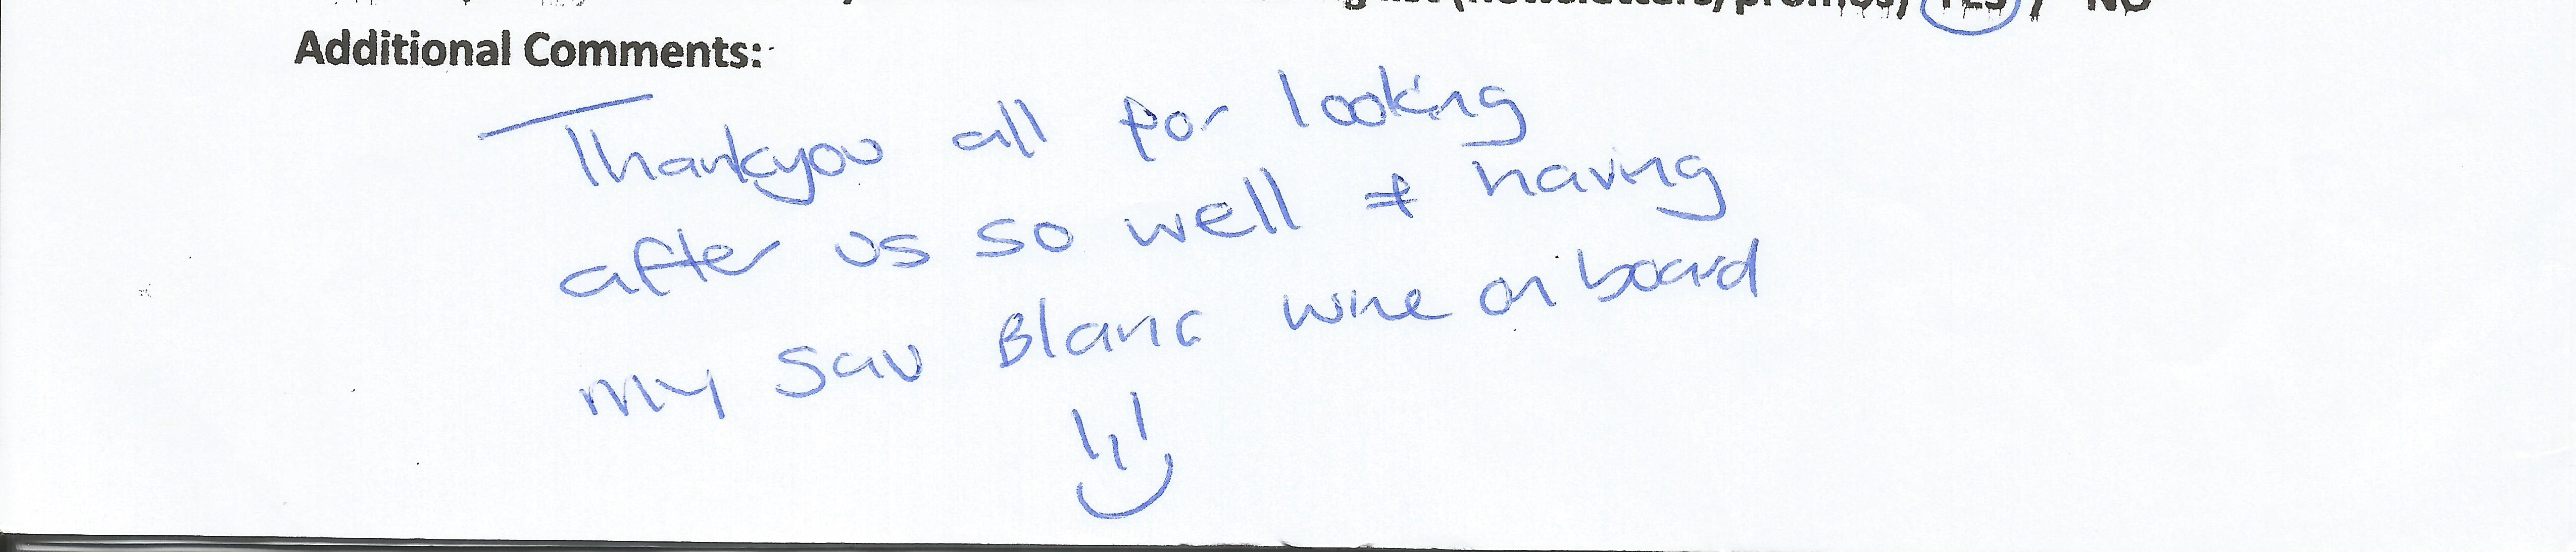 (newsletters/promos) YES / NO
Additional Comments:
Thankyou all for looking
after us so well + having
my Sav Blanc wine on board